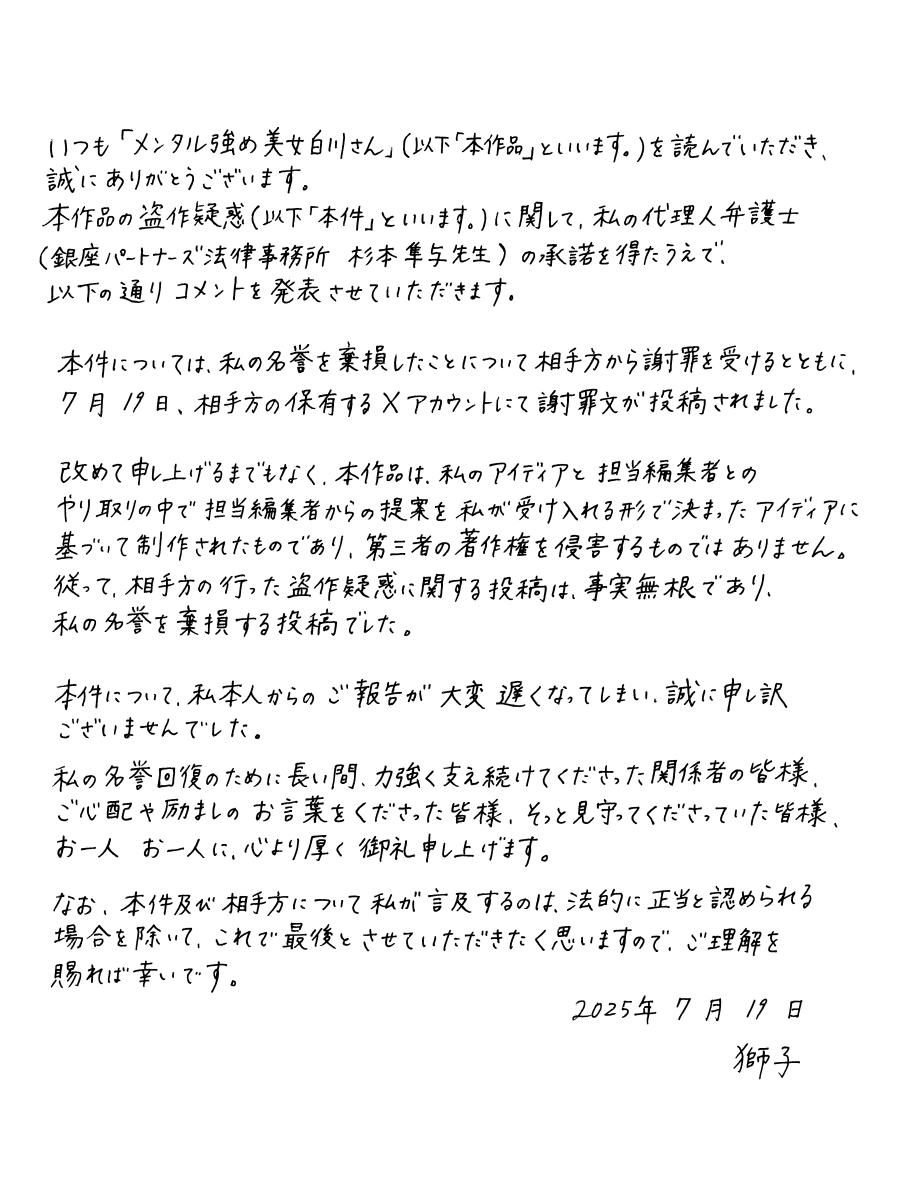 いつも「メンタル強め美女白川さん」(以下「本作品」といいます。)を読んでいただき、
誠にありがとうございます。
本作品の盗作疑惑(以下「本件」といいます。)に関して、私の代理人弁護士
(銀座パートナーズ法律事務所 杉本隼与先生)の承諾を得たうえで、
以下の通りコメントを発表させていただきます。
本件については、私の名誉を棄損したことについて相手方から謝罪を受けるとともに、
7月19日、相手方の保有するXアカウントにて謝罪文が投稿されました。
改めて申し上げるまでもなく、本作品は、私のアイディアと担当編集者との
やり取りの中で担当編集者からの提案を私が受け入れる形で決まったアイディアに
基づいて制作されたものであり、第三者の著作権を侵害するものではありません。
従って、相手方の行った盗作疑惑に関する投稿は、事実無根であり、
私の名誉を棄損する投稿でした。
本件について、私本人からのご報告が大変遅くなってしまい、誠に申し訳
ございませんでした。
私の名誉回復のために長い間、力強く支え続けてくださった関係者の皆様、
ご心配や励ましのお言葉をくださった皆様、そっと見守ってくださっていた皆様、
お一人 お一人に、心より厚く御礼申し上げます。
なお、本件及び相手方について私が言及するのは、法的に正当と認められる
場合を除いて、これで最後とさせていただきたく思いますので、ご理解を
賜れば幸いです。
2025年7月19日
獅子